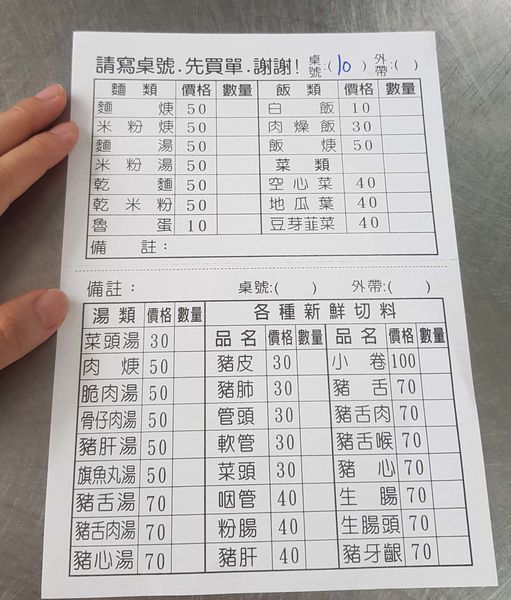 請寫桌號.先買單.謝謝! 桌號:(10) 外帶:( )
麵類 價格 數量 飯類 價格 數量
麵焿 50 白飯 10
米粉焿 50 肉燥飯 30
麵湯 50 飯焿 50
米粉湯 50 菜類
乾麵 50 空心菜 40
乾米粉 50 地瓜葉 40
魯蛋 10 豆芽韮菜 40
備註:
備註: 桌號:( ) 外帶:( )
湯類 價格 數量 各種新鮮切料
菜頭湯 30 品名 價格 數量 品名 價格 數量
肉焿 50 豬皮 30 小卷 100
脆肉湯 50 豬肺 30 豬舌 70
骨仔肉湯 50 管頭 30 豬舌肉 70
豬肝湯 50 軟管 30 豬舌喉 70
旗魚丸湯 50 菜頭 30 豬心 70
豬舌湯 70 咽管 40 生腸 70
豬舌肉湯 70 粉腸 40 生腸頭 70
豬心湯 70 豬肝 40 豬牙齦 70